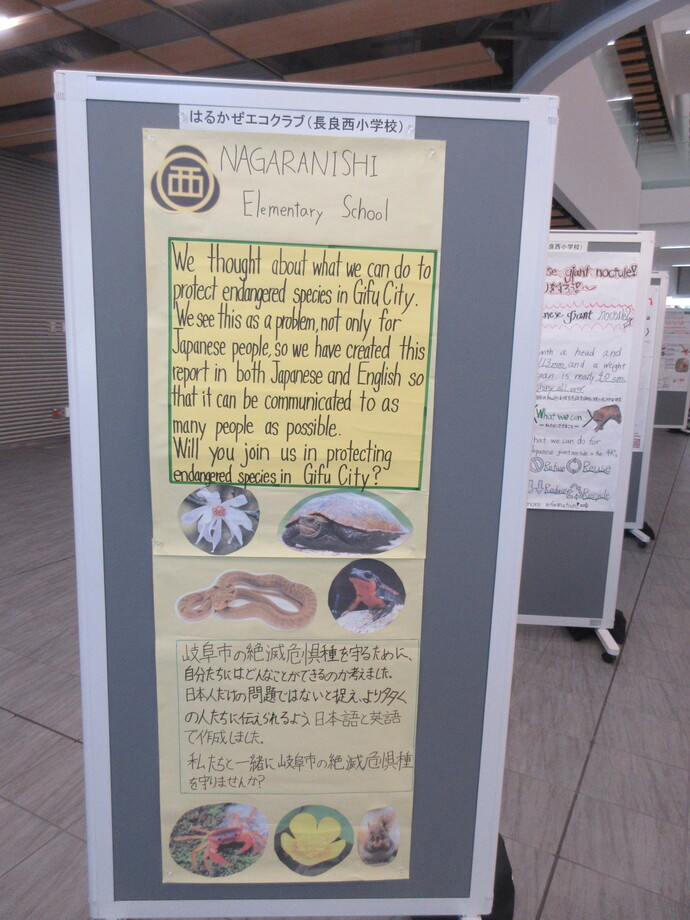 はるかぜエコクラブ(長良西小学校)
西
NAGARANISHI
Elementary School
We thought about what we can do to
protect endangered species in Gifu City.
We see this as a problem, not only for
Japanese people, so we have created this
report in both Japanese and English so
that it can be communicated to as
many people as possible.
Will you join us in protecting
endangered species in Gifu City?
岐阜市の絶滅危惧種を守るために、
自分たちにはどんなことができるのか考えました。
日本人だけの問題ではないと捉え、より多く
の人たちに伝えられるよう、日本語と英語
で作成しました。
私たちと一緒に岐阜市の絶滅危惧種
を守りませんか?
良西小学校)
giant noctule
giant
with a head and
and a weight
is nearly 40 cm
What we can
what we can do for
Japanese giant noctule is the 4R.
Refuse Reuse
Reduce Recycle
more information